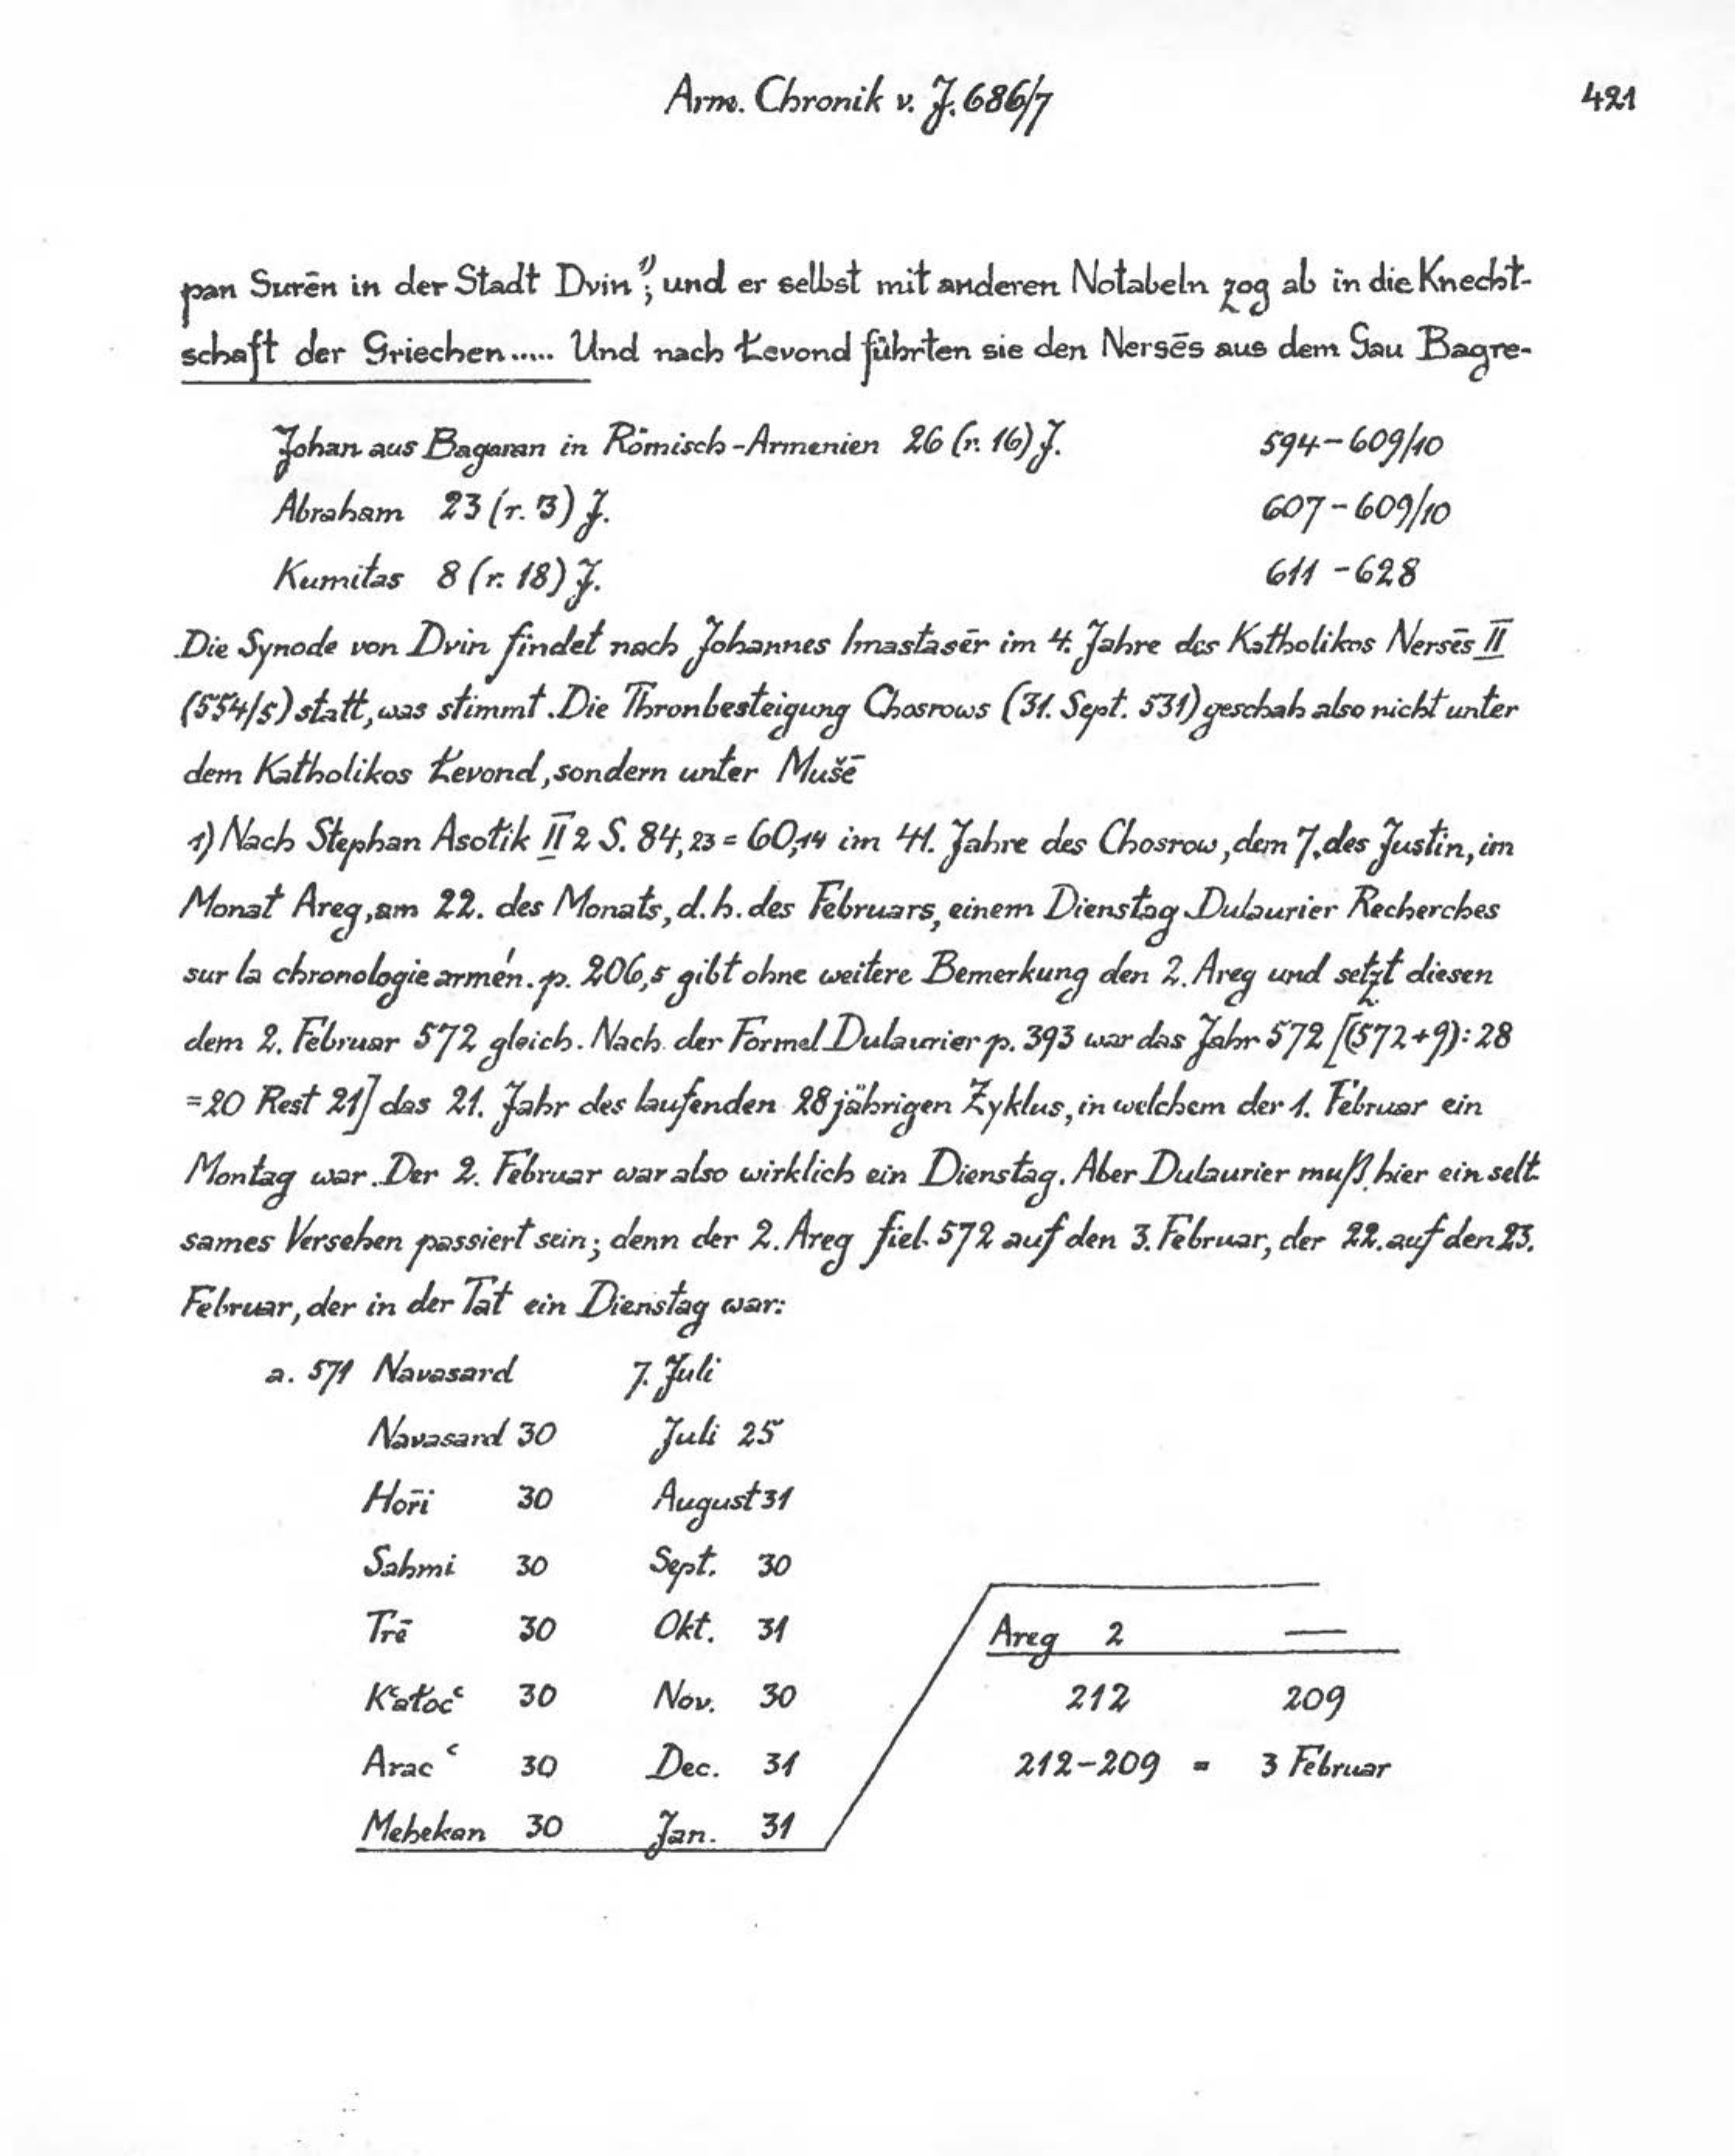 Arm. Chronik v. J. 686/7 421
pan Surēn in der Stadt Dvin¹⁾; und er selbst mit anderen Notabeln zog ab in die Knecht-
schaft der Griechen..... Und nach Łevond führten sie den Nersēs aus dem Gau Bagre-
Johan aus Bagaran in Römisch-Armenien 26 (r. 16) J. 594-609/10
Abraham 23 (r. 3) J. 607-609/10
Kumitas 8 (r. 18) J. 611-628
Die Synode von Dvin findet nach Johannes Imastasēr im 4. Jahre des Katholikos Nersēs II
(554/5) statt, was stimmt. Die Thronbesteigung Chosrows (31. Sept. 531) geschah also nicht unter
dem Katholikos Łevond, sondern unter Mušē
1) Nach Stephan Asołik II 2 S. 84,23 = 60,14 im 41. Jahre des Chosrow, dem 7. des Justin, im
Monat Areg, am 22. des Monats, d.h. des Februars, einem Dienstag Dulaurier Recherches
sur la chronologie armén. p. 206,5 gibt ohne weitere Bemerkung den 2. Areg und setzt diesen
dem 2. Februar 572 gleich. Nach der Formel Dulaurier p. 393 war das Jahr 572 [(572+9):28
=20 Rest 21] das 21. Jahr des laufenden 28jährigen Zyklus, in welchem der 1. Februar ein
Montag war. Der 2. Februar war also wirklich ein Dienstag. Aber Dulaurier muß hier ein selt-
sames Versehen passiert sein; denn der 2. Areg fiel 572 auf den 3. Februar, der 22. auf den 23.
Februar, der in der Tat ein Dienstag war:
a. 571 Navasard 7. Juli
Navasard 30 Juli 25
Hoṙi 30 August 31
Sahmi 30 Sept. 30
Trē 30 Okt. 31
Kʿałocʿ 30 Nov. 30
Aracʿ 30 Dec. 31
Mehekan 30 Jan. 31
Areg 2 —
212 209
212-209 = 3 Februar